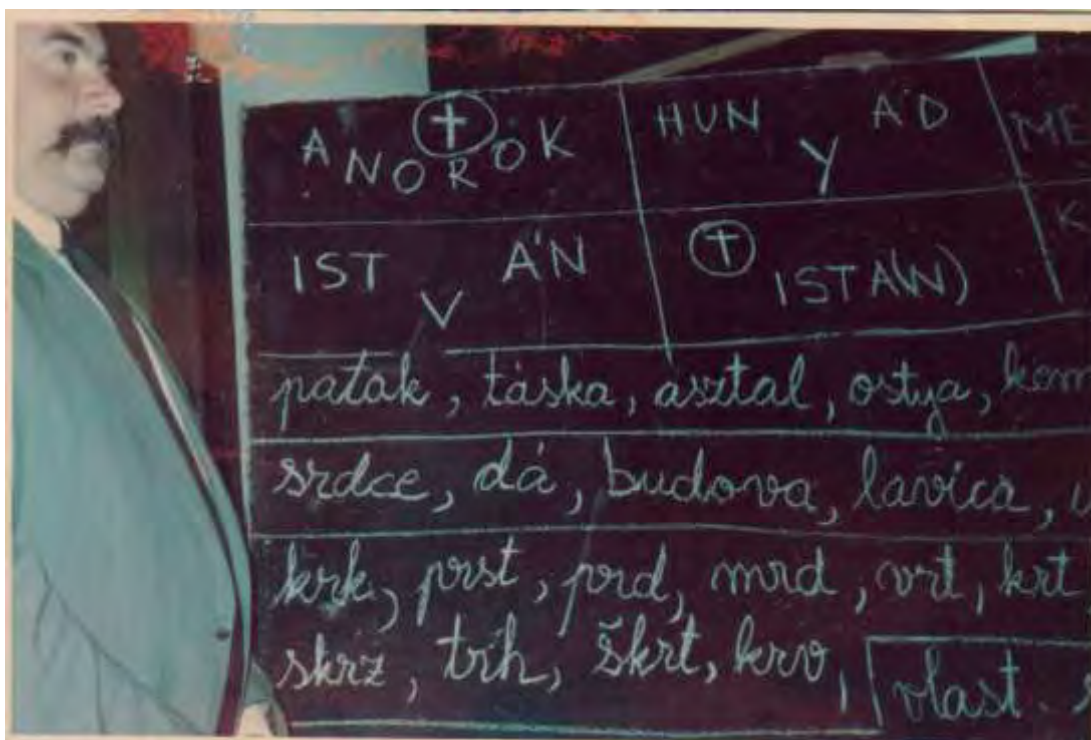 ANOROK HUN Y ÁD ME
IST V ÁN IST A(N) K
patak, táska, asztal, ostya, kom
srdce, dá, budova, lavica,
krk, prst, prd, mrd, vrt, krt
skrz, trh, škrt, krv, vlast.